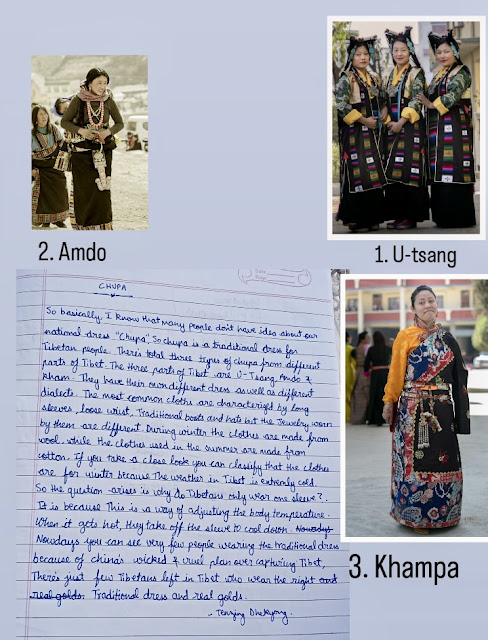 2. Amdo
1. U-tsang
CHUPA
So basically, I know that many people don't have idea about our
national dress "Chupa". So chupa is a traditional dress for
Tibetan people. There's total three types of chupa from different
parts of Tibet. The three parts of Tibet are U-Tsang, Amdo &
Kham. They have their own different dress as well as different
dialects. The most common cloths are characterized by long
sleeves, loose wrist, Traditional boots and hats but the Jewelry wears
by them are different. During winter the clothes are made from
wool, while the clothes used in the summer are made from
cotton. If you take a close look you can classify that the clothes
are for winter because The weather in Tibet is extremly cold.
So the question arises is why do Tibetans only wear one sleeve?
It is because This is a way of adjusting the body temperature.
When it gets hot, they take off the sleeve to cool down. Nowdays
Nowdays you can see very few people wearing the traditional dress
because of china's wicked & cruel plan over capturing Tibet,
There's just few Tibetans left in Tibet who wear the right and
real golds. Traditional dress and real golds.
- Tenzing
3. Khampa